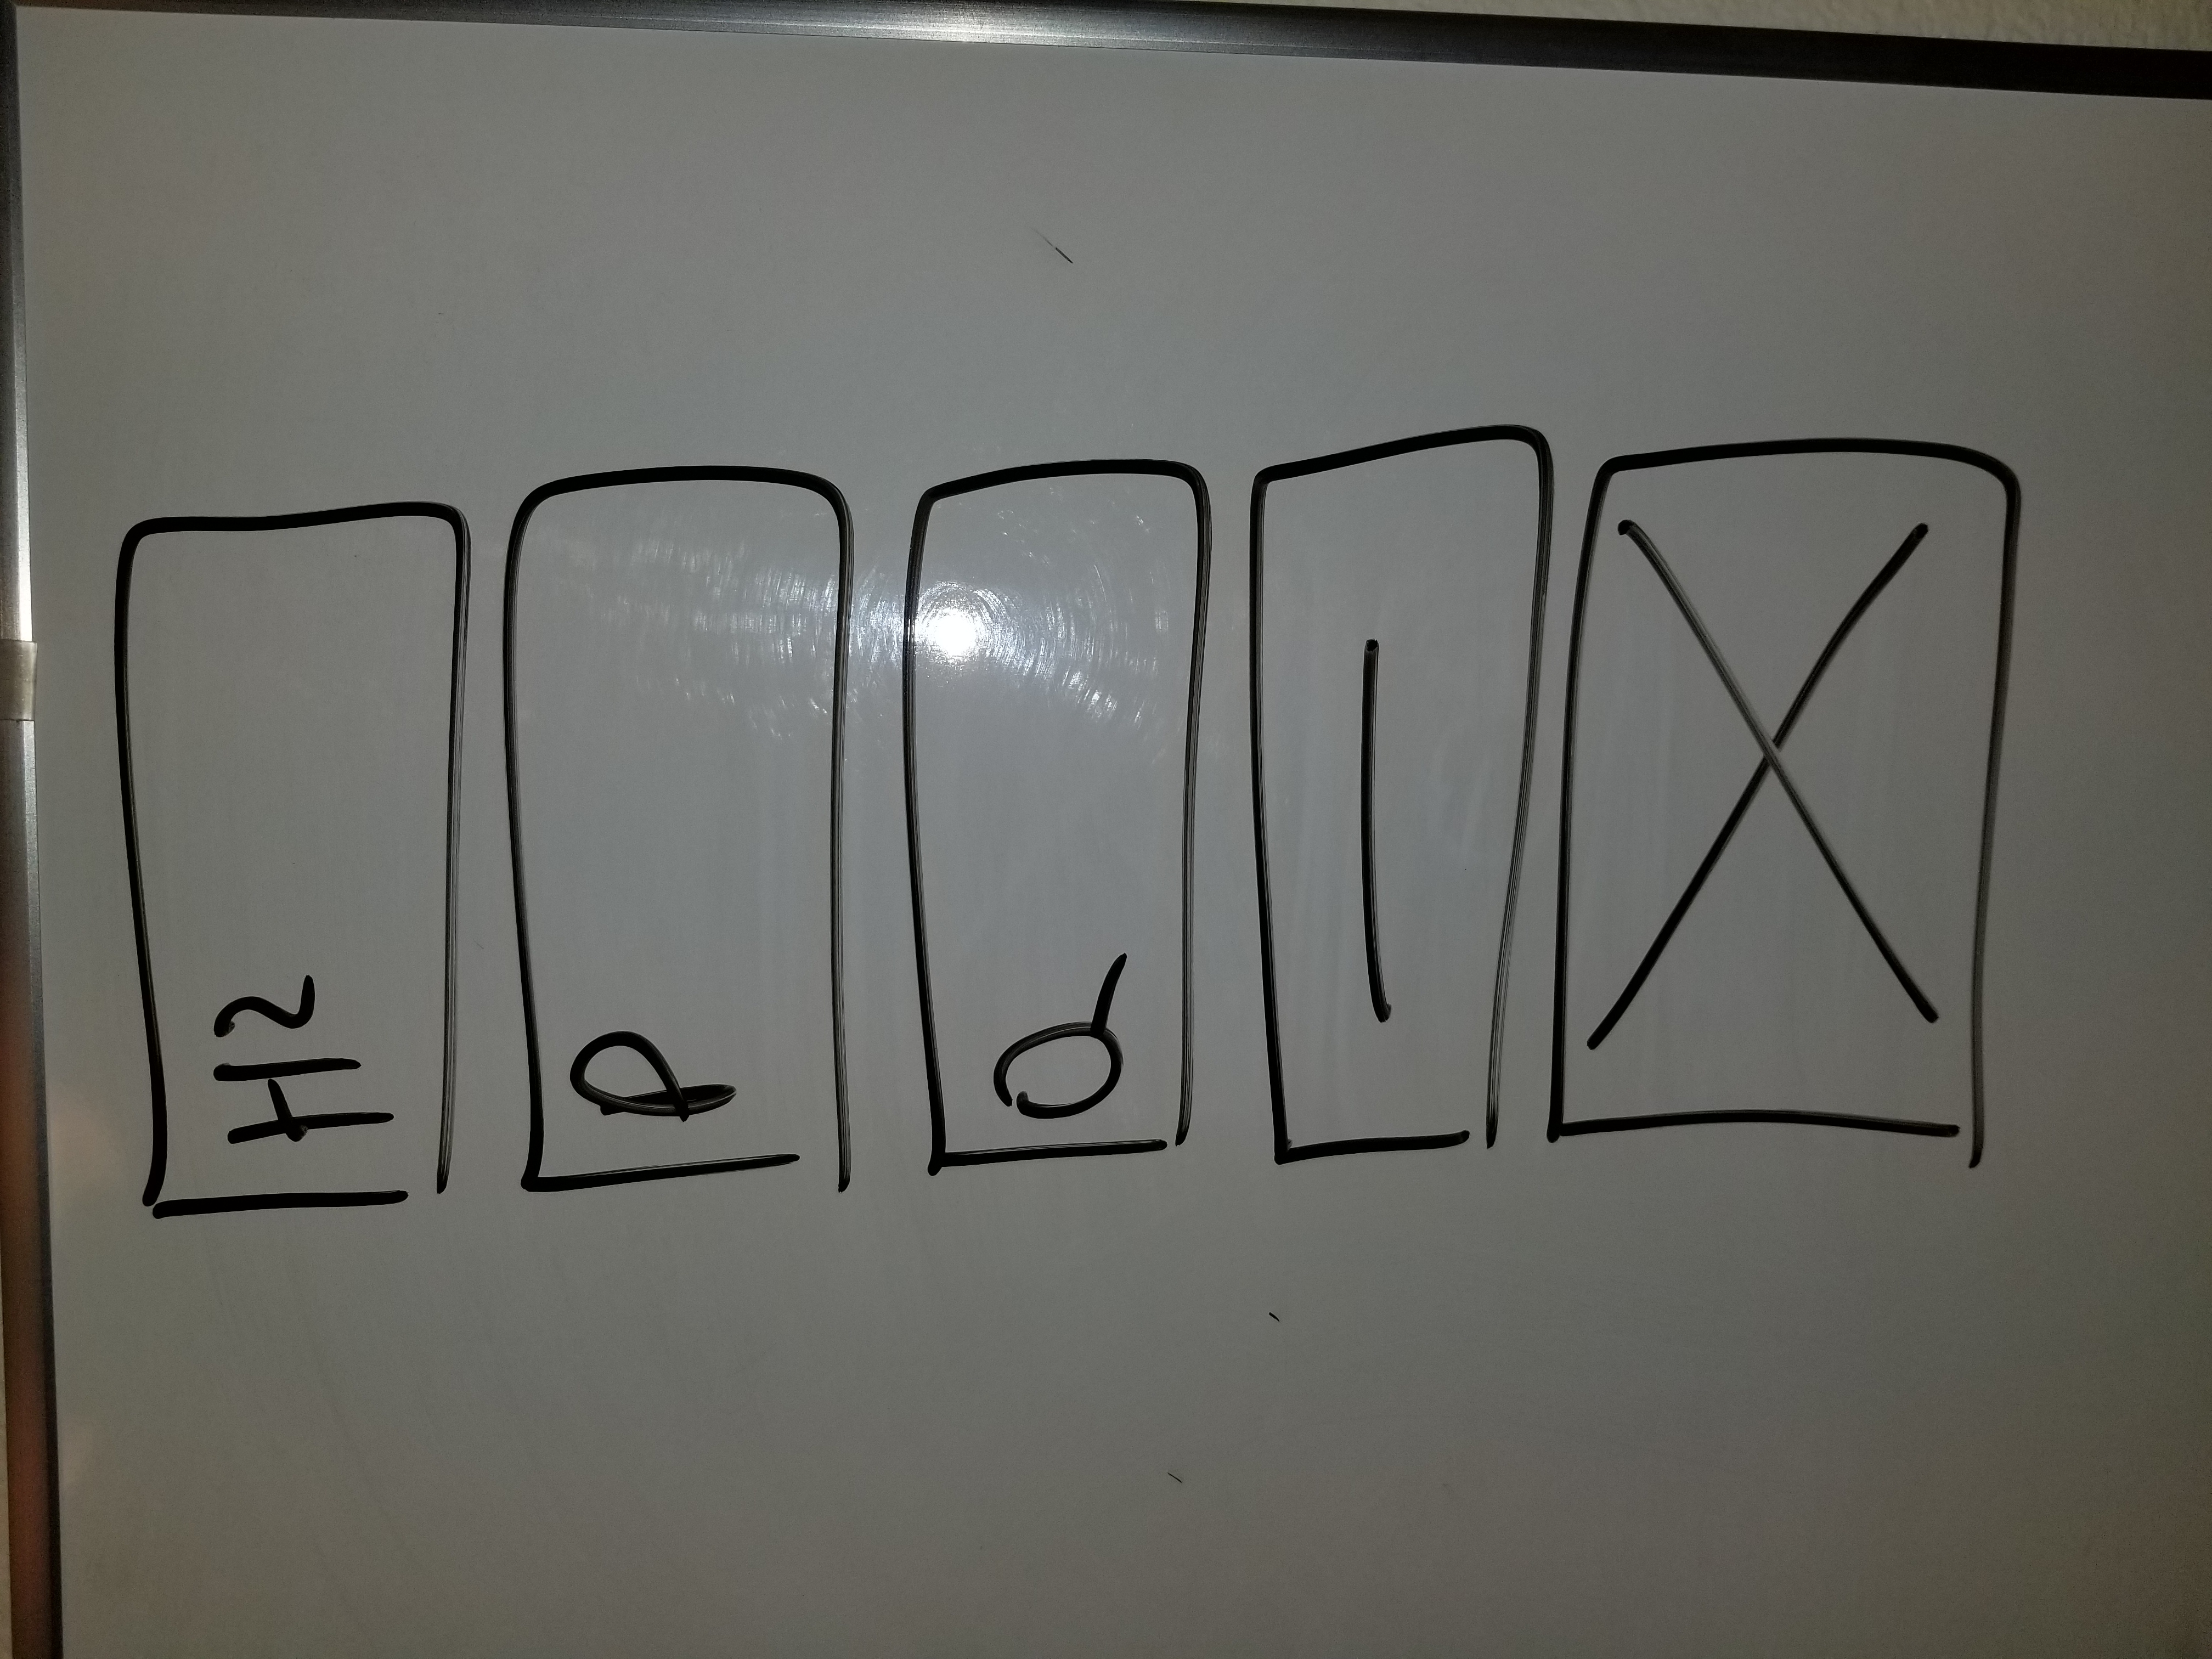 H2
P
Q